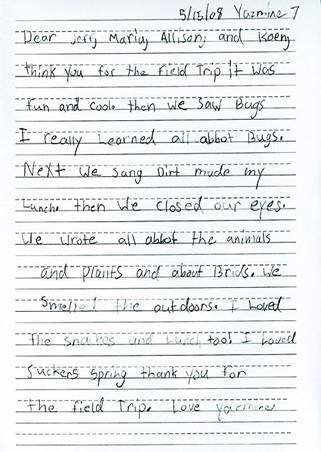 5/15/08 Yazmine 7
Dear Jory, Mariya, Allison, and Koeny
think you for the Field Trip it was
fun and cool. then we saw Bugs
I really Learned all abbot Bugs.
Next we sang Dirt made my
Lunch. then we closed our eyes.
We wrote all abbot the animals
and Plants and about Brids. we
Smelled the outdoors. I Loved
the snakes and Lunch too! I Loved
Suckers spring thank you for
the field Trip. Love yazmine